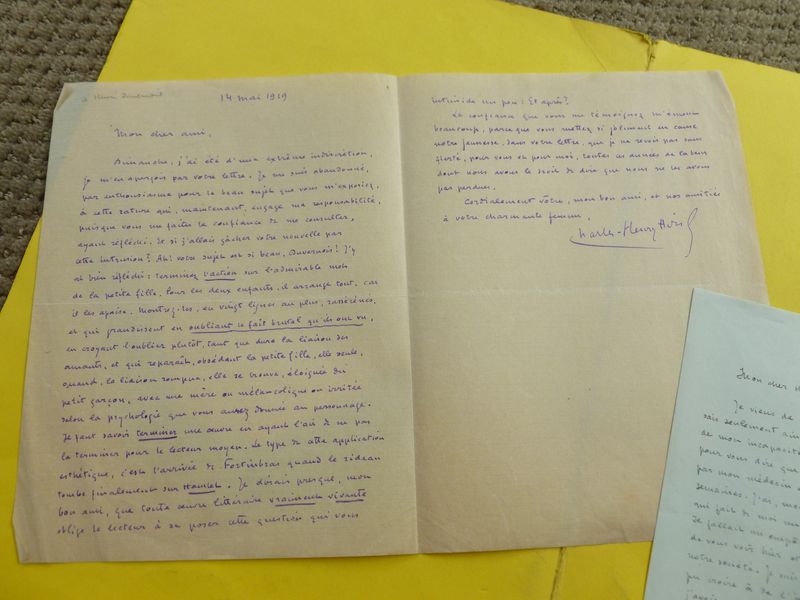 à Henri Duvernois
14 mai 1919
Mon cher ami,
Dimanche, j'ai été d'une extrême indiscrétion,
je m'en aperçois par votre lettre. Je me suis abandonné,
par enthousiasme pour le beau sujet que vous m'exposiez,
à cette rature qui, maintenant, engage ma responsabilité,
puisque vous me faites la confiance de me consulter,
ayant réfléchi. Et si j'allais gâcher votre nouvelle par
cette intrusion? Ah! votre sujet est si beau, Duvernois! J'y
ai bien réfléchi: terminez l'action sur l'admirable mot
de la petite fille. Pour les deux enfants, il arrange tout, car
il les apaise. Montrez-les, en vingt lignes au plus, rassérénés,
et qui grandissent en oubliant le fait brutal qu'ils ont vu,
en croyant l'oublier plutôt, tant que dure la liaison des
amants, et qui reparaît, obsédant la petite fille, elle seule,
quand, la liaison rompue, elle se trouve, éloignée du
petit garçon, avec une mère ou mélancolique ou irritée
selon la psychologie que vous aurez donnée au personnage.
Il faut savoir terminer une œuvre en ayant l'air de ne pas
la terminer pour le lecteur moyen. Le type de cette application
esthétique, c'est l'arrivée de Fortinbras quand le rideau
tombe finalement sur Hamlet. Je dirais presque, mon
bon ami, que toute œuvre littéraire vraiment vivante
oblige le lecteur à se poser cette question qui vous
intimide un peu: Et après?
La confiance que vous me témoignez m'émeut
beaucoup, parce que vous mettez si joliment en cause
notre jeunesse, dans votre lettre, que je ne revois pas sans
fierté, pour vous et pour moi, toutes ces années de labeur
dont nous avons le droit de dire que nous ne les avons
pas perdues.
Cordialement vôtre, mon bon ami, et nos amitiés
à votre charmante femme.
Charles-Henry Hirsch
Mon cher
Je viens de
sais seulement
de mon incapacité
pour vous dire que
par mon médecin
semaines. J'ai,
qui fait de moi
Il fallait un
de vous voir hier
notre société. Je
pu croire à
j'avais